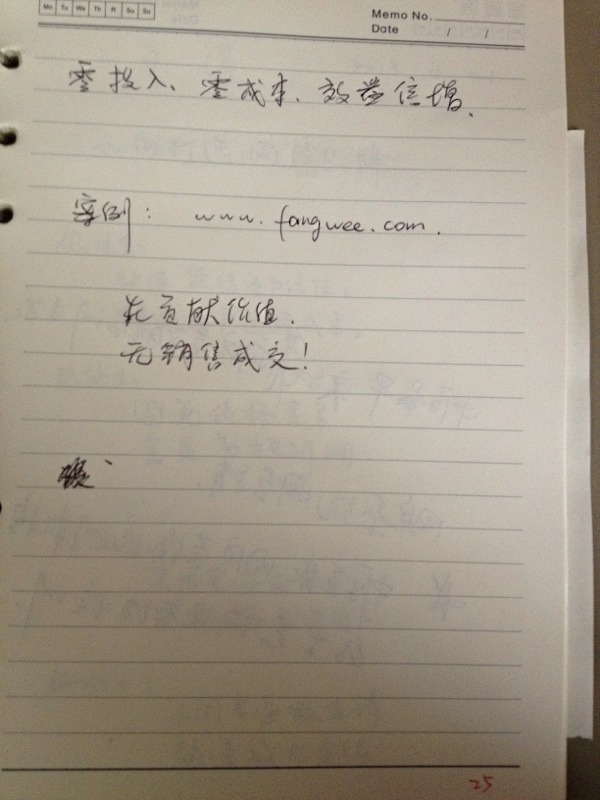 Mo Tu We Th Fr Sa Su
Memo No.
Date / /
零投入、零成本、效益倍增、
案例: www.fangwee.com.
先贡献价值.
无销售成交!
25